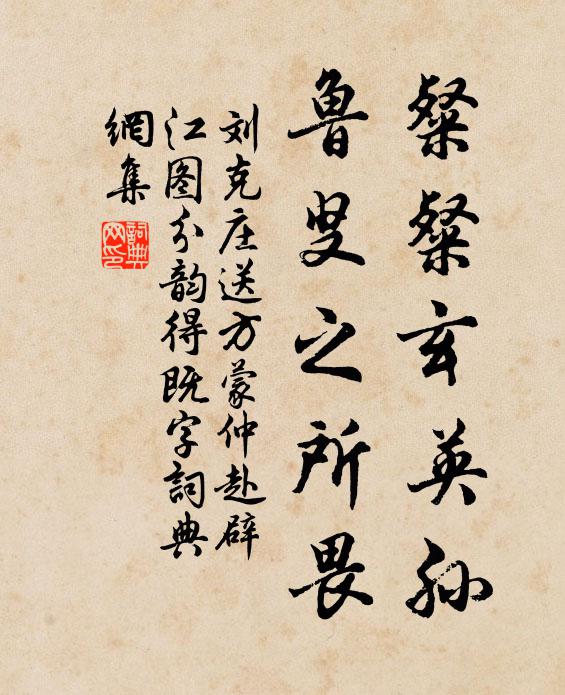 粲粲玄英孙
鲁叟之所畏
刘克庄送方蒙仲赴辟
江图分韵得既字詞典
網集
詞典
网印